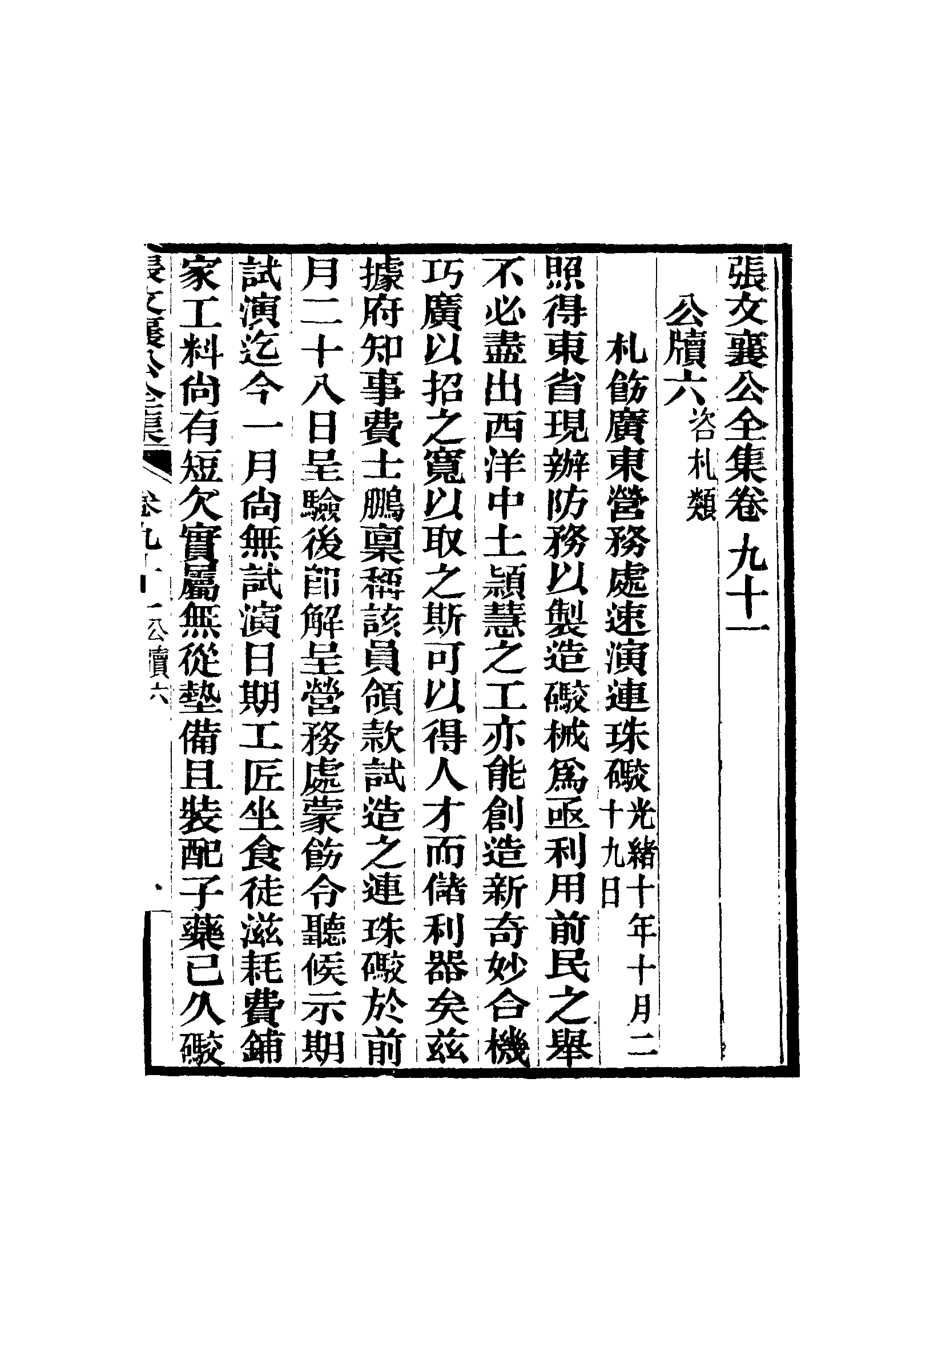 張文襄公全集卷九十一
公牘六咨札類
札飭廣東營務處速演連珠礮光緒十年十月二十九日
照得東省現辦防務以製造礮械爲亟利用前民之舉
不必盡出西洋中土穎慧之工亦能創造新奇妙合機
巧廣以招之寬以取之斯可以得人才而儲利器矣茲
據府知事費士鵬稟稱該員領款試造之連珠礮於前
月二十八日呈驗後卽解呈營務處蒙飭令聽候示期
試演迄今一月尙無試演日期工匠坐食徒滋耗費鋪
家工料尙有短欠實屬無從墊備且裝配子藥已久礮
張文襄公全集 卷九十一 公牘六 一